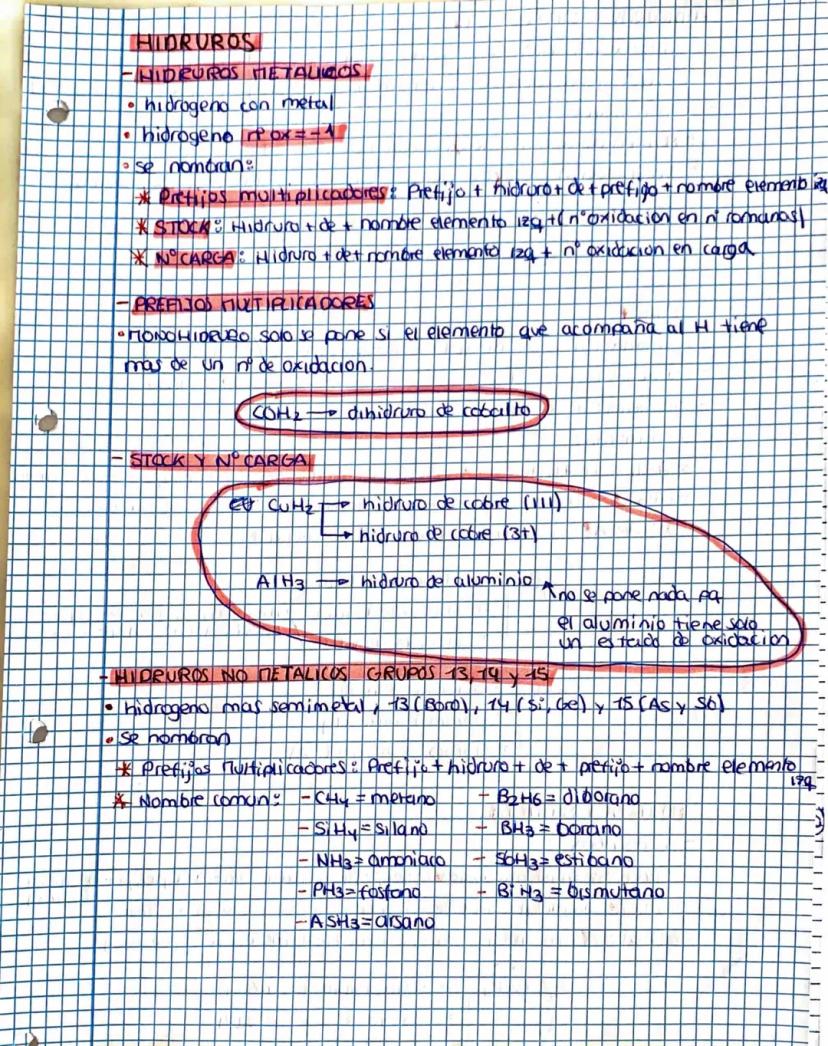 HIDRUROS
- HIDRUROS METALICOS
• hidrogeno con metal
• hidrogeno nº ox = -1
• se nombran:
* Prefijos multiplicadores: Prefijo + hidruro + de + prefijo + nombre elemento izq
* STOCK: Hidruro + de + nombre elemento izq + (nº oxidacion en nº romanos)
* Nº CARGA: Hidruro + de + nombre elemento izq + nº oxidacion en carga
- PREFIJOS MULTIPLICADORES
• MONOHIDRURO solo se pone si el elemento que acompaña al H tiene
mas de un nº de oxidacion.
COH2 → dihidruro de cobalto
- STOCK Y Nº CARGA
CuH2 → hidruro de cobre (III)
→ hidruro de cobre (3+)
AlH3 → hidruro de aluminio
no se pone nada pq
el aluminio tiene solo
un estado de oxidacion
- HIDRUROS NO METALICOS GRUPOS 13, 14 y 15
• hidrogeno mas semimetal, 13 (Boro), 14 (Si, Ge) y 15 (As y Sb)
• se nombran
* Prefijos Multiplicadores: Prefijo + hidruro + de + prefijo + nombre elemento
izq
* Nombre comun: - CH4 = metano - B2H6 = diborano
- SiH4 = silano - BH3 = borano
- NH3 = amoniaco - SbH3 = estibano
- PH3 = fosfano - BiH3 = bismutano
- ASH3 = arsano